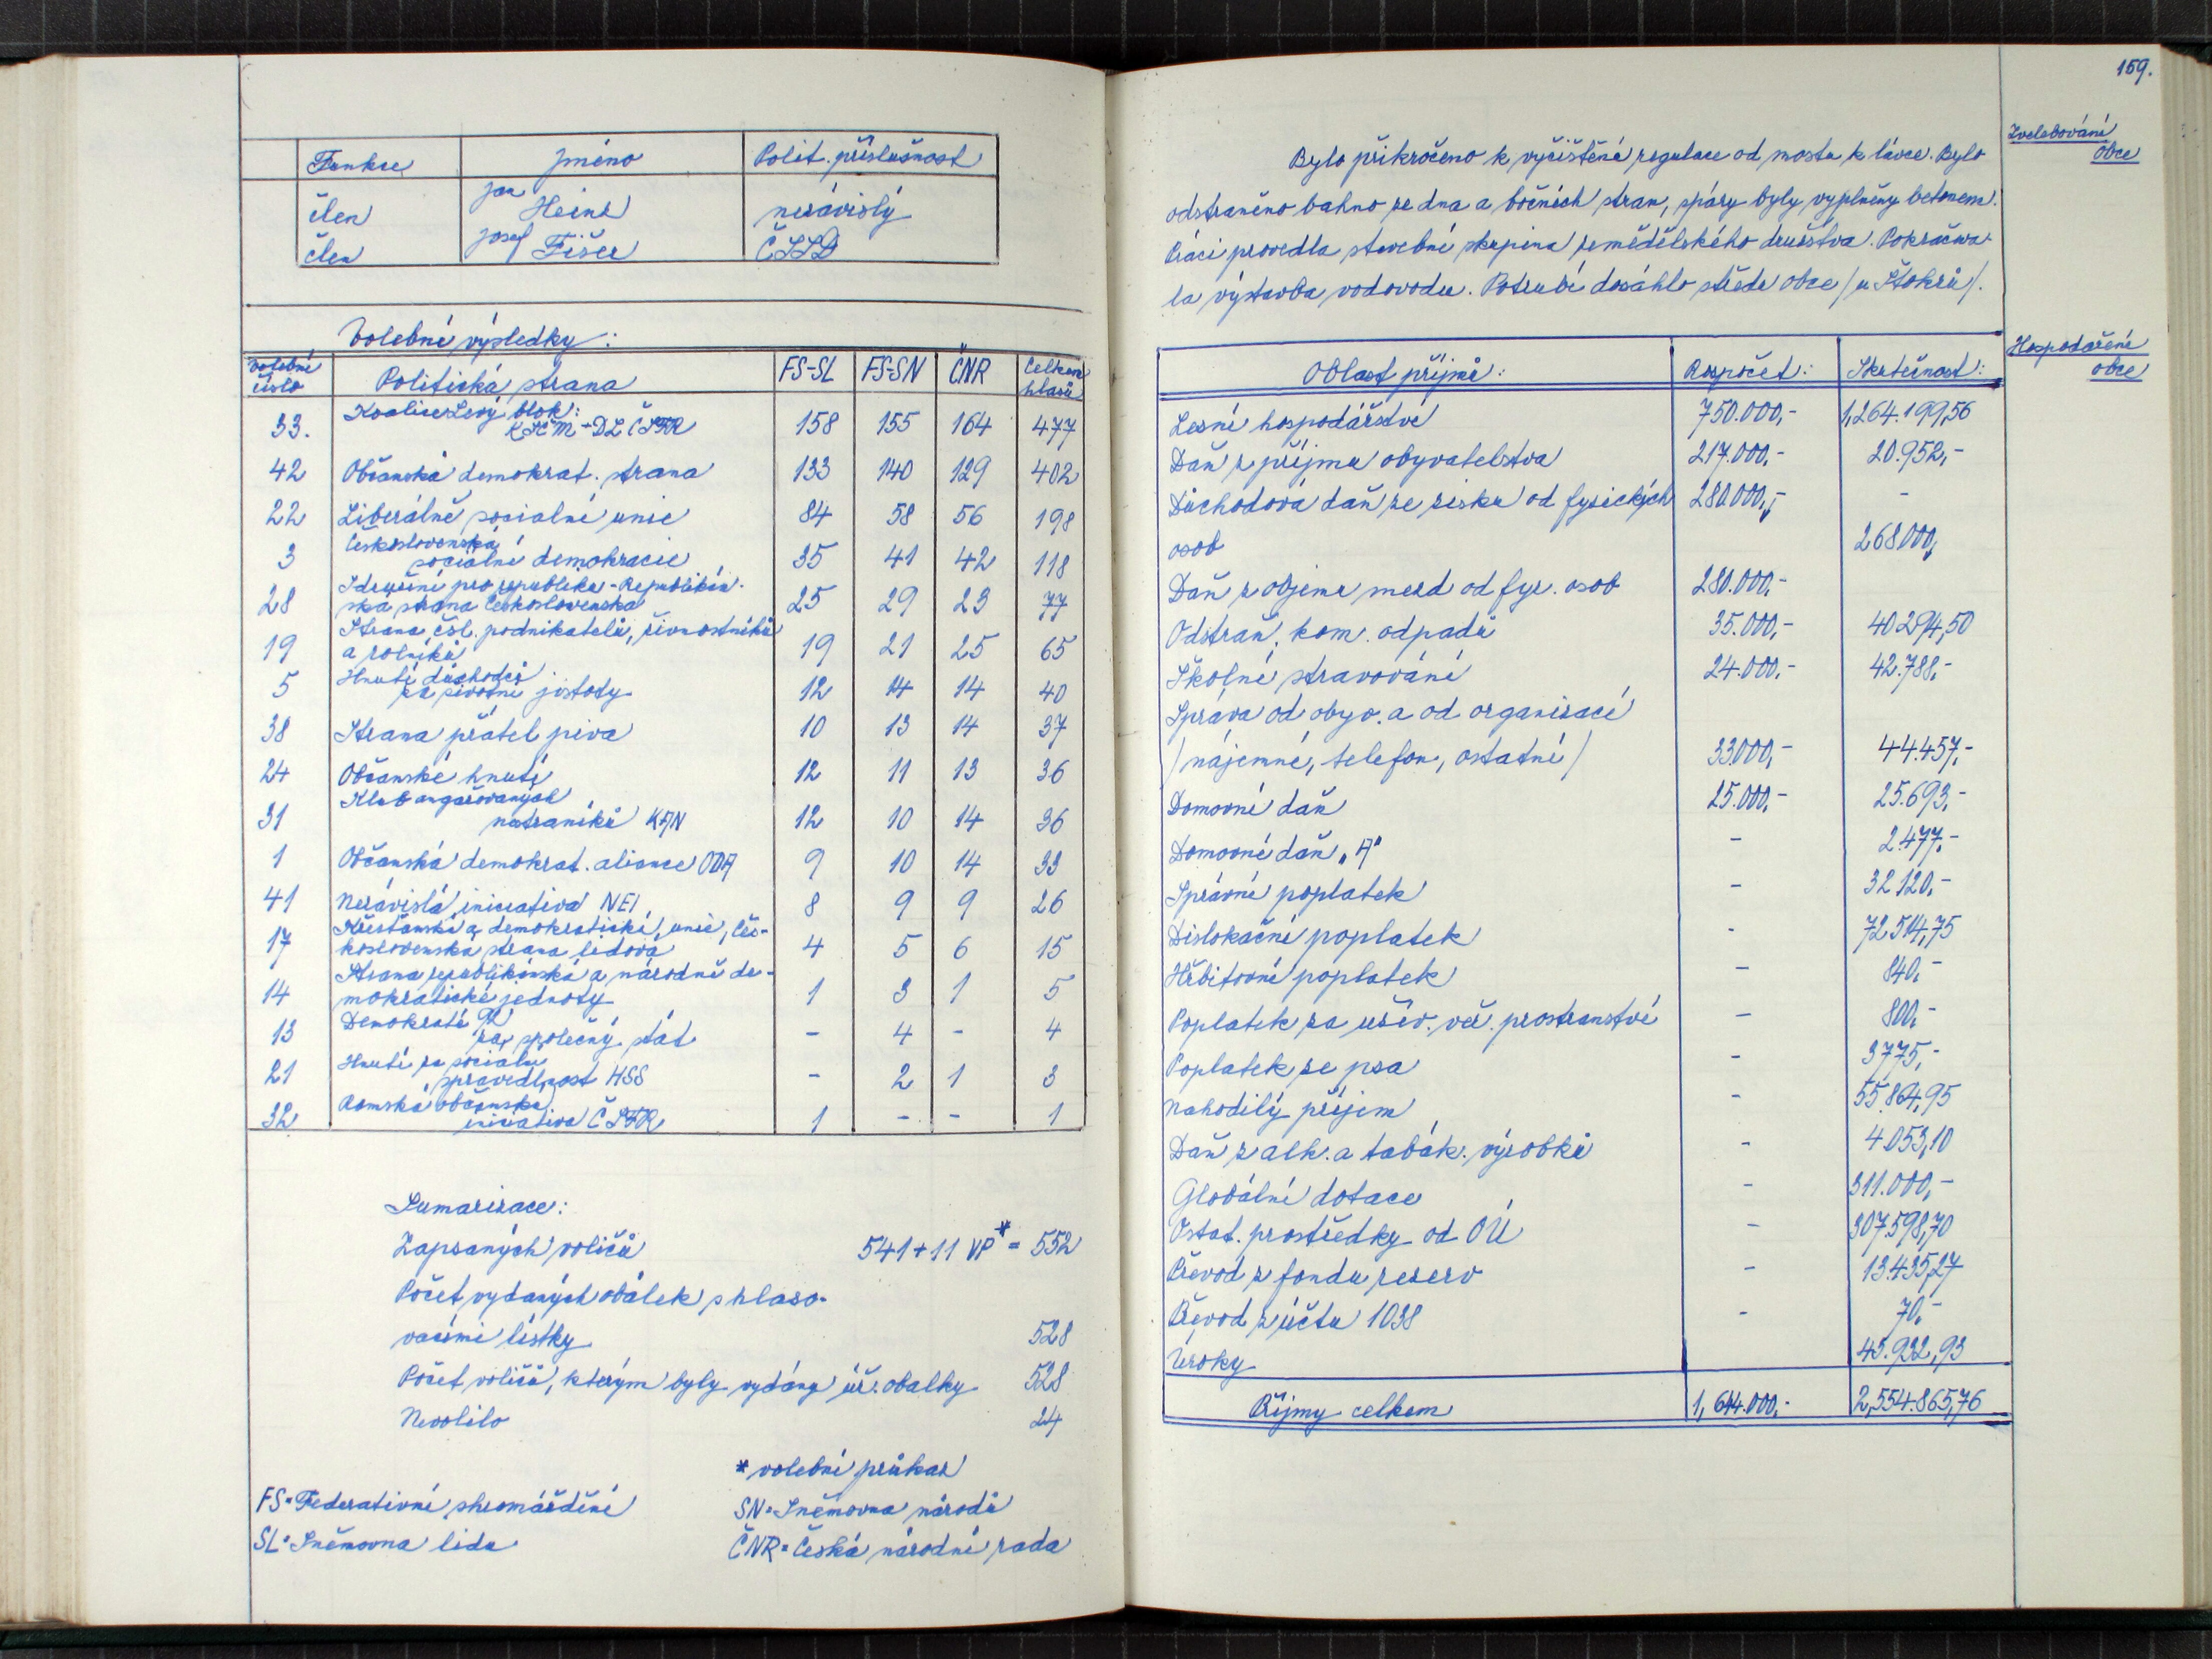 Funkce Jméno Polit. příslušnost
člen Jan Heinz nezávislý
člen Josef Fišer ČSSD
Volební výsledky:
Volební číslo Politická strana FS-SL FS-SN ČNR Celkem hlasů
33. Koalice Levý blok: KSČM - DL ČSFR 158 155 164 477
42 Občanská demokrat. strana 133 140 129 402
22 Liberálně sociální unie 84 58 56 198
3 Československá sociální demokracie 35 41 42 118
28 Sdružení pro republiku - Republikán-
ská strana Československa 25 29 23 77
Strana čsl. podnikatelů, živnostníků
19 a rolníků 19 21 25 65
5 Hnutí důchodců za životní jistoty 12 14 14 40
38 Strana přátel piva 10 13 14 37
24 Občanské hnutí 12 11 13 36
31 Klub angažovaných nestraníků KAN 12 10 14 36
1 Občanská demokrat. aliance ODA 9 10 14 33
41 Nezávislá iniciativa NEI 8 9 9 26
Křesťanská a demokratická unie, Čes-
17 koslovenská strana lidová 4 5 6 15
Strana republikánská a národně de-
14 mokratické jednoty 1 3 1 5
13 Demokraté 92 za společný stát - 4 - 4
21 Hnutí za sociální spravedlnost HSS - 2 1 3
32 Romská občanská iniciativa ČSFR 1 - - 1
Sumarizace:
Zapsaných voličů 541 + 11 VP* = 552
Počet vydaných obálek s hlaso-
vacími lístky 528
Počet voličů, kterým byly vydány úř. obálky 528
Nevolilo 24
* volební průkaz
FS = Federativní shromáždění SN = Sněmovna národů
SL = Sněmovna lidu ČNR = Česká národní rada
159.
Zvelebování
obce
Bylo přikročeno k vyčištění regulace od mostu k lávce. Bylo
odstraněno bahno ze dna a bočních stran, spáry byly vyplněny betonem.
Práci provedla stavební skupina zemědělského družstva. Pokračova-
la výstavba vodovodu. Potrubí dosáhlo středu obce / u Štokrů /.
Hospodaření
obce
Oblast příjmů: Rozpočet: Skutečnost:
Lesní hospodářství 750.000,- 1,264.199,56
Daň z příjmu obyvatelstva 217.000,- 20.952,-
Důchodová daň ze zisku od fyzických 280.000,- -
osob 268000,
Daň z objemu mezd od fyz. osob 280.000,-
Odstraň. kom. odpadů 35.000,- 40294,50
Školní stravování 24.000,- 42.788,-
Správa od obyv. a od organizací
/ nájemné, telefon, ostatní / 33000,- 44.457,-
Domovní daň 25.000,- 25.693,-
Domovní daň „A" - 2477,-
Správní poplatek - 32120,-
Dislokační poplatek - 72514,75
Hřbitovní poplatek - 840,-
Poplatek za užív. veř. prostranství - 800,-
Poplatek ze psa - 3775,-
Nahodilý příjem - 55.864,95
Daň z alk. a tabák. výrobků - 4.053,10
Globální dotace - 311.000,-
Ostat. prostředky od OÚ - 307.598,70
Převod z fondu rezerv - 13.435,27
Převod z účtu 1038 - 70,-
Úroky 43.932,93
Příjmy celkem 1,644.000,- 2,554.865,76